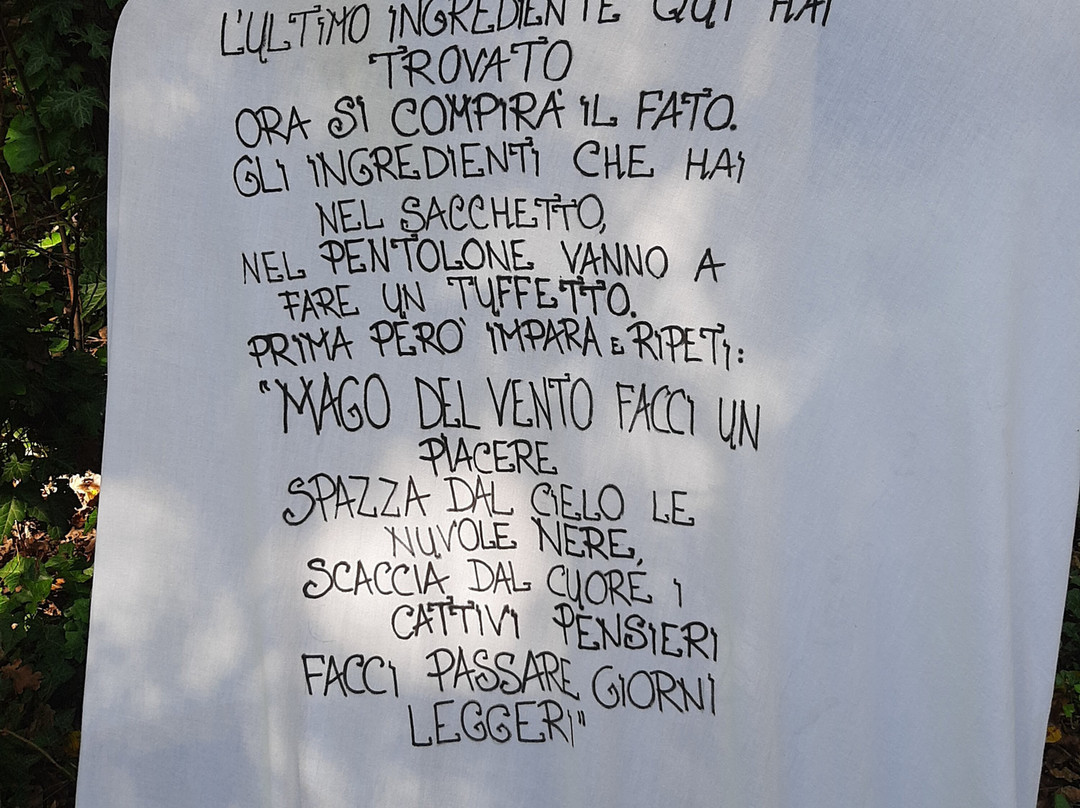 L'ULTIMO INGREDIENTE QUI HAI
TROVATO
ORA SI COMPIRA' IL FATO.
GLI INGREDIENTI CHE HAI
NEL SACCHETTO,
NEL PENTOLONE VANNO A
FARE UN TUFFETTO.
PRIMA PERO' IMPARA E RIPETI:
"MAGO DEL VENTO FACCI UN
PIACERE
SPAZZA DAL CIELO LE
NUVOLE NERE,
SCACCIA DAL CUORE I
CATTIVI PENSIERI
FACCI PASSARE GIORNI
LEGGERI"